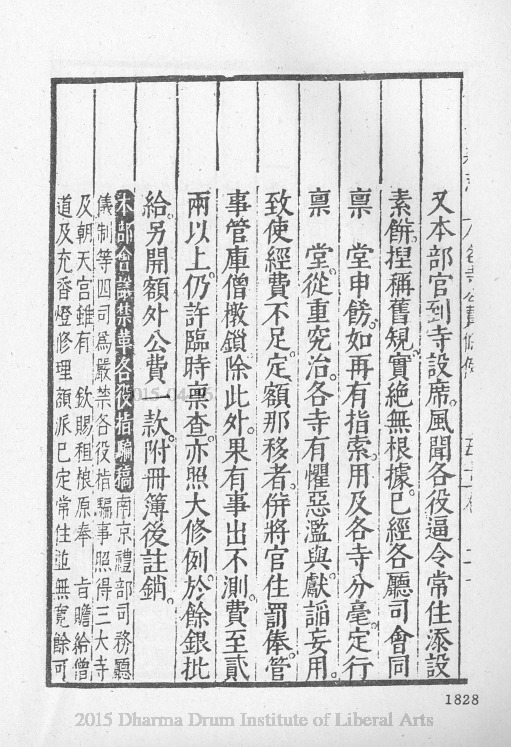 又本部官到寺設席。風聞各役逼令常住添設
素餅。揑稱舊規。實絶無根據。已經各廳司會同
禀　堂申飭。如再有指索。用及各寺分毫。定行
禀　堂。從重究治。各寺有懼惡濫與。獻諂妄用。
致使經費不足。定額那移者。併將官住罰俸。管
事管庫僧墩鎖。除此外。果有事出不測。費至貳
兩以上。仍許臨時禀查。亦照大修例。於餘銀批
給。另開額外公費一款。附冊簿後註銷。
本部會議禁革各役指騙稿南京禮部司務廳
儀制等四司爲嚴禁各役指騙事照得三大寺
及朝天宮雖有　欽賜租粮原奉　旨贍給僧
道及充香燈修理額派已定常住並無寬餘可
1828
2015 Dharma Drum Institute of Liberal Arts